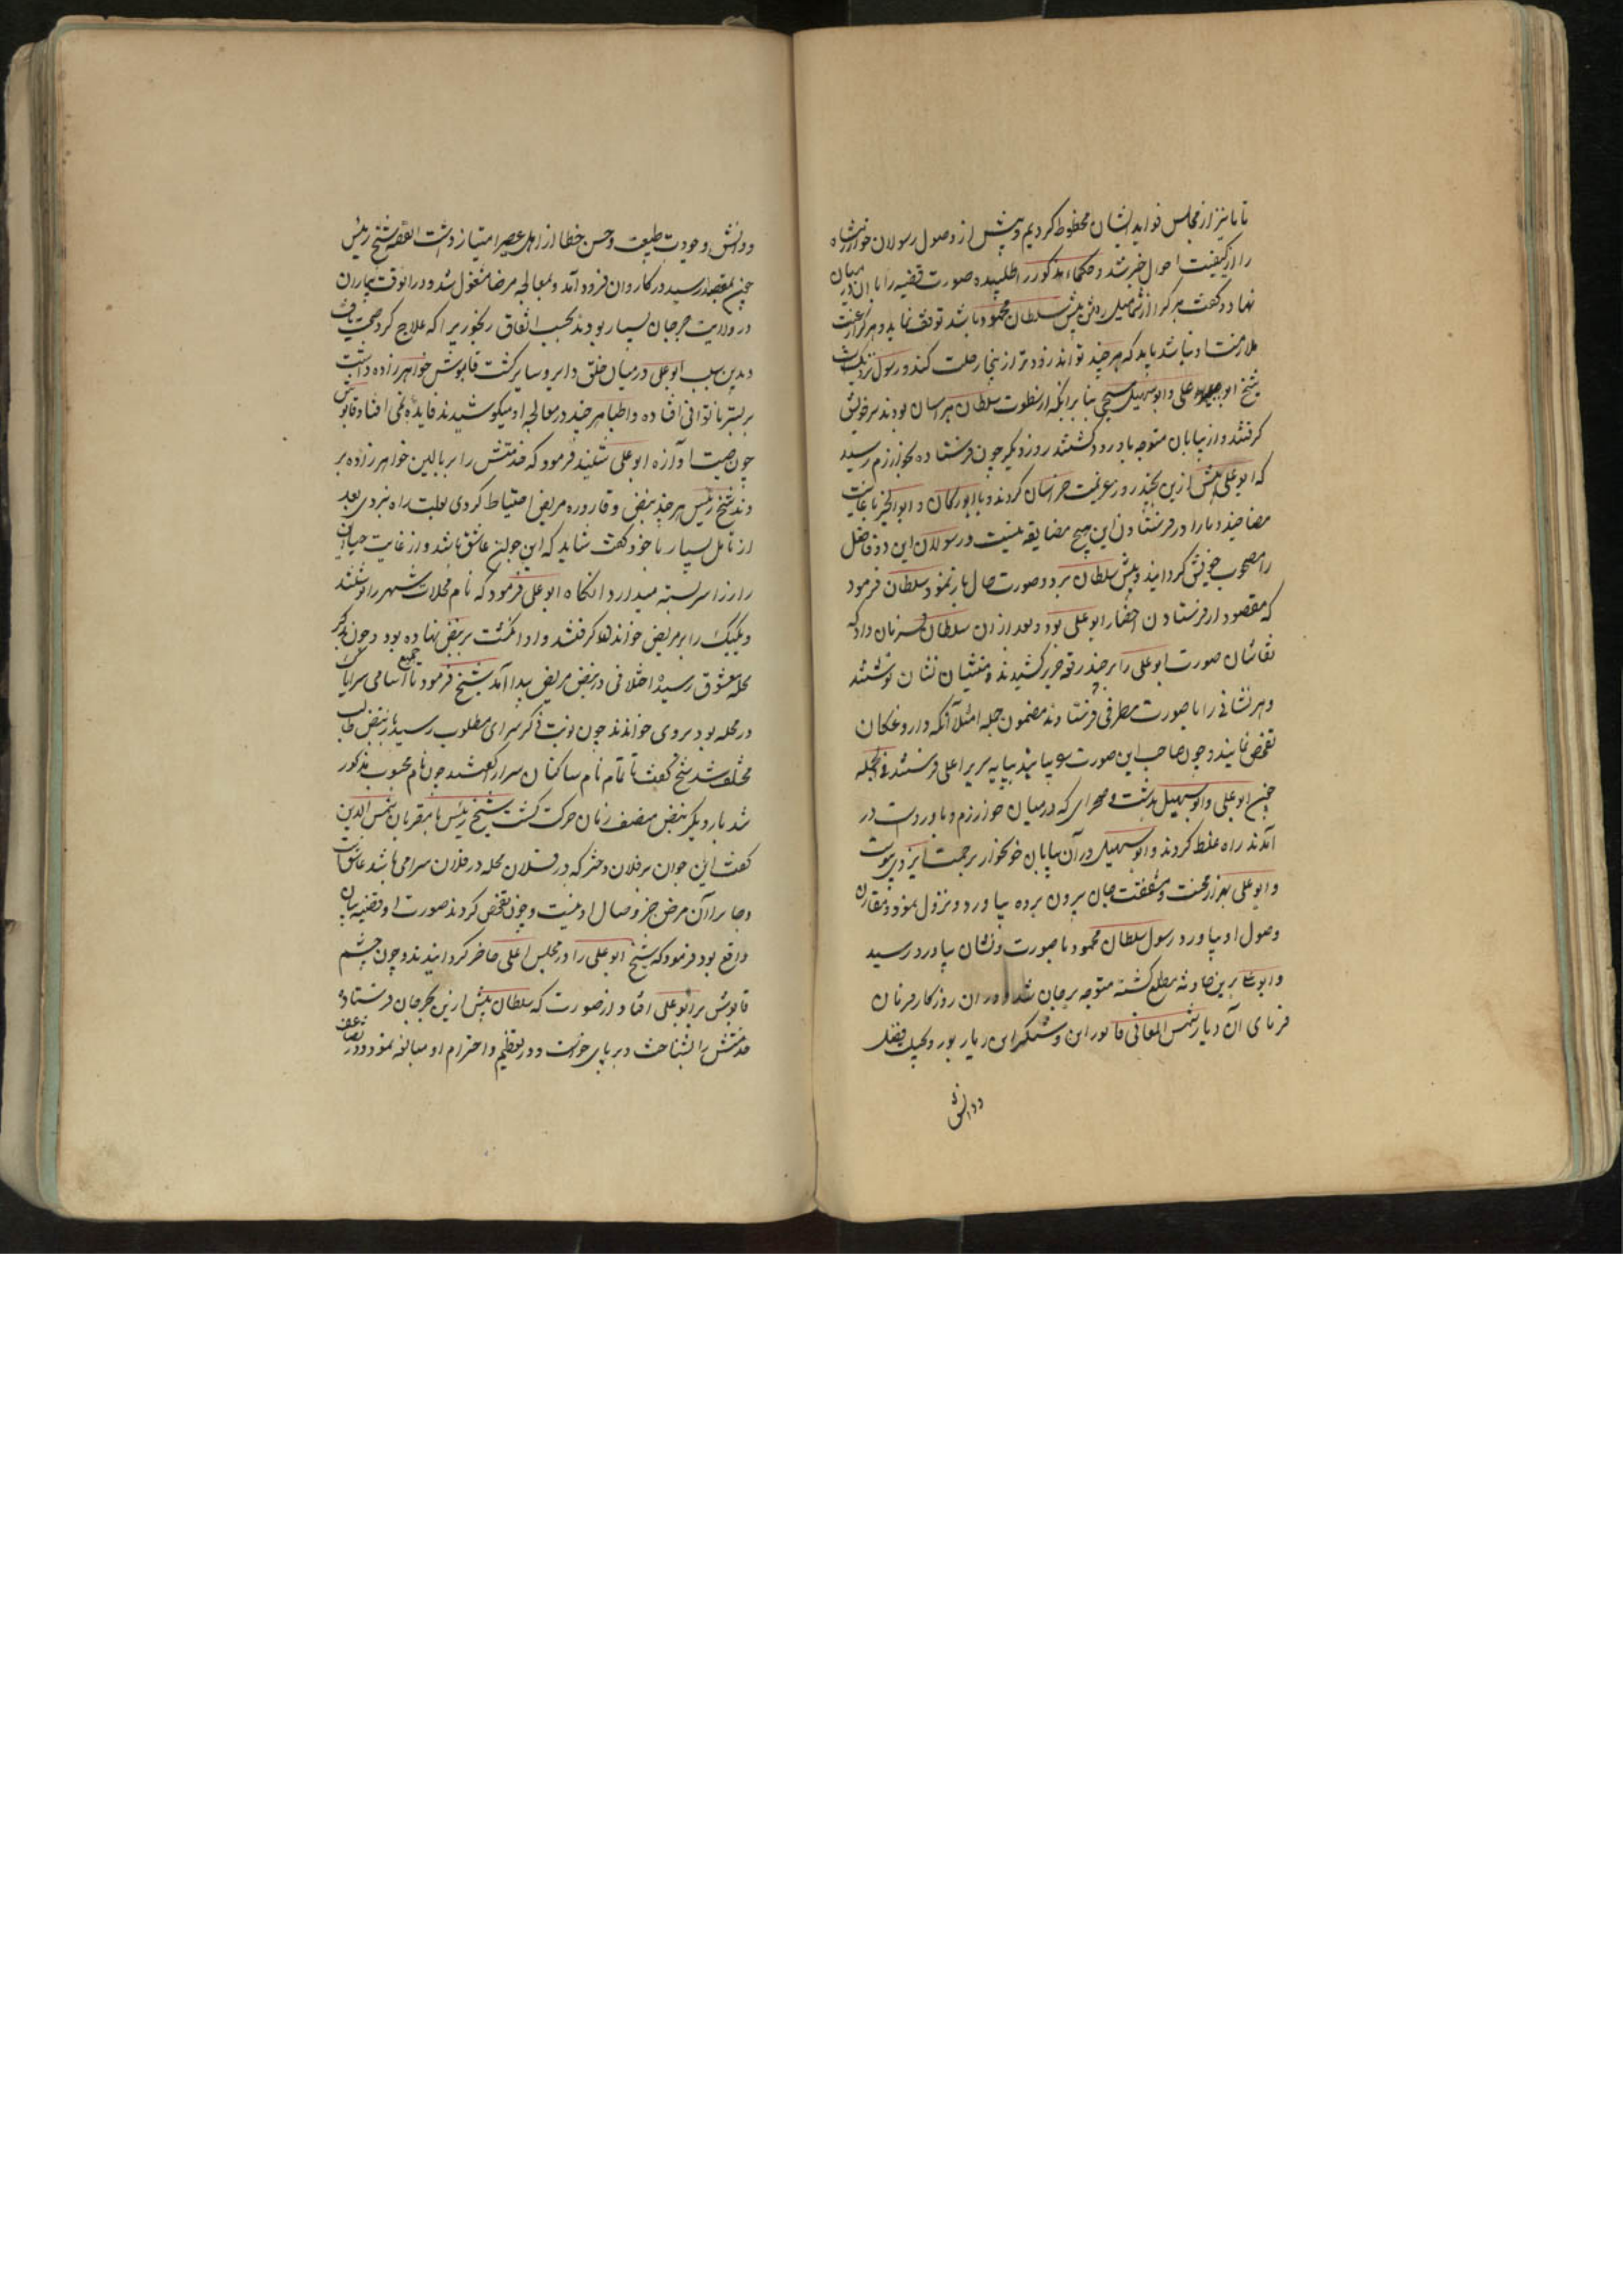 تا ما نیز از مجلس فواید ایشان محظوظ کردیم و پیش از وصول رسولان خوارزمشاه
را از کیفیت احوال خبر شد و حکماء مذکور را طلبیده صورت قضیه را با ایشان در میان
نهاد و کفت هر کرا از شما میل رفتن پیش سلطان محمود باشد توقف نماید و هر کرا رغبت
ملازمت او نباشد باید که هر چند تواند زودتر ازینجا رحلت کند و رسول نزدیک
شیخ ابو علی و ابو سهیل مسیحی بنا برانکه از سطوت سلطان هراسان بودند سر خویش
کرفتند و از بیابان متوجه باورد کشتند روز دیکر چون فرستاده بخوارزم رسید
که ابو علی پیش ازین بچند روز عزیمت خراسان کردند و با ابو ریحان و ابو الخیر بغایت
مضایقه نیست و رسولان این دو فاضل
را مصحوب خویش کردانیده پیش سلطان برد و صورت حال باز نمود سلطان فرمود
که مقصود از فرستادن احضار ابو علی بود و بعد ازان سلطان فرمان داد که
نقاشان صورت ابو علی را بر چند رقعه حریر کشیدند و منشیان نشان نوشتند
و هر نشانی را با صورت بطرفی فرستادند مضمون جمله امثله آنکه داروغکان
تفحص نمایند و چون صاحب این صورت بیابند بپایه سریر اعلی فرستند فی الجمله
چون ابو علی و ابو سهیل بدشت و صحرای که در میان خوارزم و باوردست در
آمدند راه غلط کردند و ابو سهیل در آن بیابان خونخوار برحمت ایزدی پیوست
و ابو علی بهزار محنت و مشقت جان بیرون برده بباورد و نزول نمود و مقارن
وصول او بباورد رسول سلطان محمود با صورت و نشان بباورد رسید
و ابو علی برین حادثه مطلع کشته متوجه جرجان شد و در ان روزکار فرمان
فرمای آن دیار شمس المعالی قابوس ابن وشمکیر بود و بحلیت فضل
و دانش
و دانش و جودت طبیعت و حسن خط از اهل عصر امتیاز داشت القصه شیخ رئیس
چون بمقصد رسید در کاروان فرود آمد و بمعالجه مرضا مشغول شد و در انوقت بیماران
در ولایت جرجان بسیار بودند بحسب اتفاق رنجوریرا که علاج کرد صحت یافت
و بدین سبب ابو علی در میان خلق دایر و سایر کشت قابوس خواهر زاده داشت
بر بستر ناتوانی افتاده و اطبا هر چند در معالجه او میکوشیدند فایده نمی افتاد قابوس
چون صیت و آوازه ابو علی شنید فرمود که خدمتش را بر بالین خواهر زاده بر
دند شیخ رئیس هر چند بنبض و قاروره مریض احتیاط کردی بعلت راه نبردی بعد
از تامل بسیار با خود کفت شاید که این جوان عاشق باشد و از غایت حیا
راز را سربسته میدارد انکاه ابو علی فرمود که نام محلات شهر را نوشتند
و یکیک را بر مریض خواندن کرفتند و او انکشت بر نبض نهاده بود و چون بذکر
محله معشوق رسید اختلافی در نبض مریض پیدا آمد شیخ فرمود تا جمیع اسامی سراها که
در محله بود بروی خواندند چون نوبت ذکر سرای مطلوب رسید باز نبض طالب
مختلف شد شیخ کفت تا تمام نام ساکنان سرا را کفتند چون نام محبوب مذکور
شد بار دیکر نبض ضعیف زنان حرکت کشت شیخ رئیس با مقربان شمس الدین
کفت این جوان بر فلان دختر که در فلان محله در فلان سرا می باشد عاشق است
و چاره آن مرض جز وصال او نیست و چون تفحص کردند صورت او قضیه بیان
واقع بود فرمود که شیخ ابو علی را در مجلس اعلی حاضر کردانیدند و چون چشم
قابوس بر ابو علی افتاد از صورت که سلطان پیش ازین بجرجان فرستاده
خدمتش را بشناخت و بر پای خواست و در تعظیم و احترام او مبالغه نمود و در